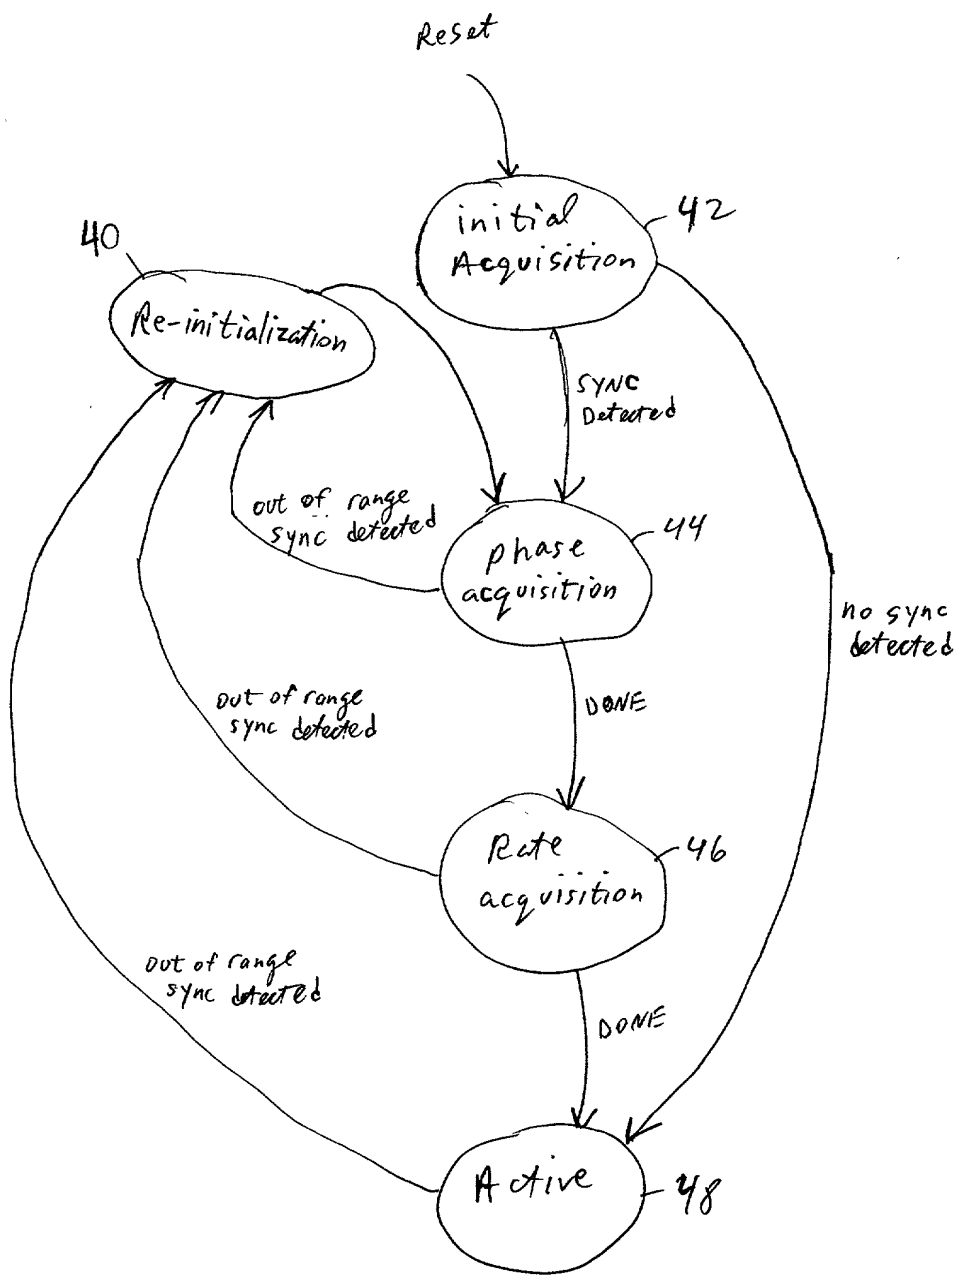 Reset
initial
Acquisition
42
40
Re-initialization
SYNC
Detected
out of range
sync detected
phase
acquisition
44
no sync
detected
out of range
sync detected
DONE
Rate
acquisition
46
out of range
sync detected
DONE
Active
48